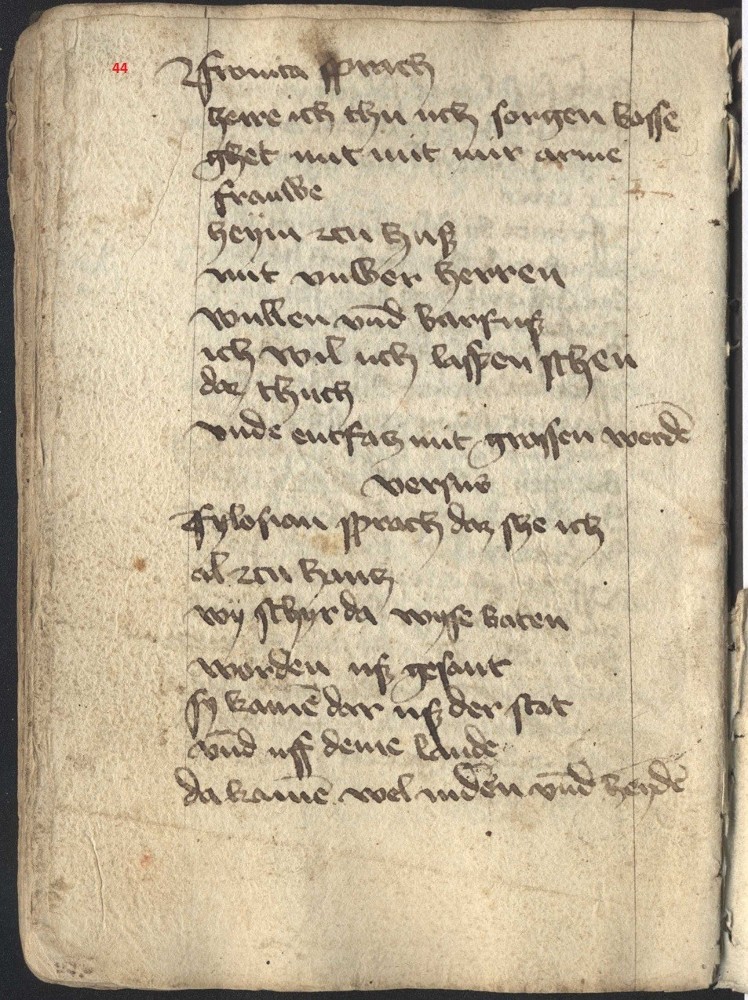 44
Fronica sprach
herre ich thu uch sorgen bosse
ghet mit mir arme
frauwe
heym zcu huß
mit unßer herren
wullen vnd barfuß
ich wil uch lasßen sehen
daz thuch
vnde entfaz mit grossen werdē
versus
Fylosian sprach daz she ich
al zcu hantz
wy schyr da wyse baten
worden uß gesant
sy kamē dar uß der stat
vnd uff deme lande
da kamē wol indēn vnd heydē